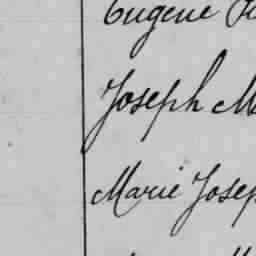 Eugene
Joseph M
Marie Josep